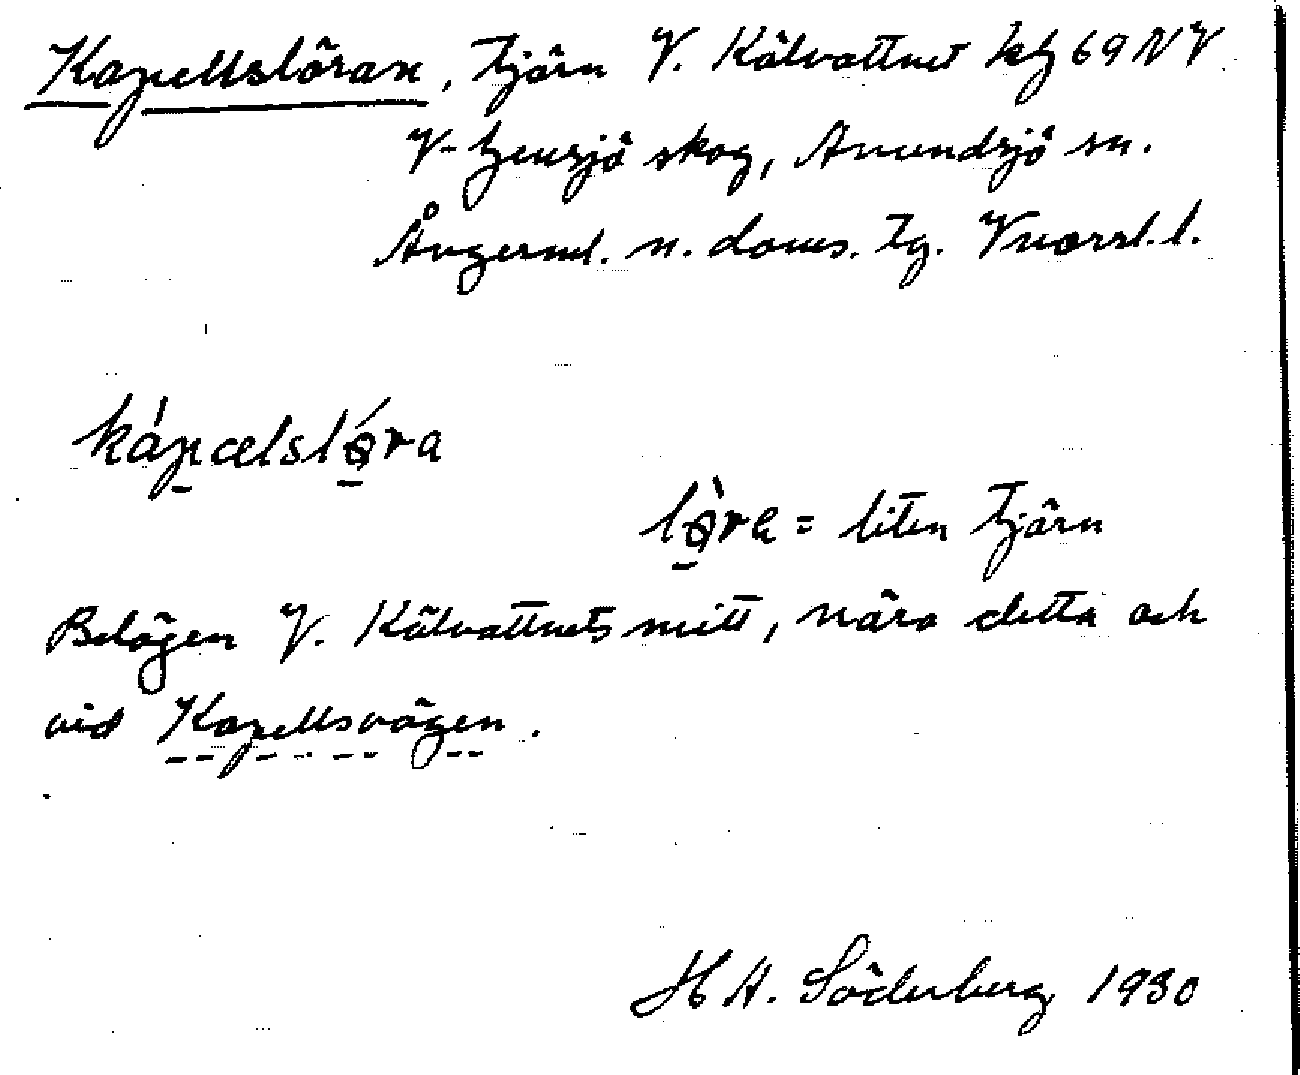 Kapellslöran, tjärn V. Kälvattnet kbl 69 NV
V. Gensjö skog, Anundsjö sn.
Ångerml. n. doms. tg. Vnorrl. l.
kápælsló̱ra
lò̱ra = liten tjärn
Belägen V. Kälvattnets mitt, nära detta och
vid Kapellsvägen.
H A. Söderberg 1930